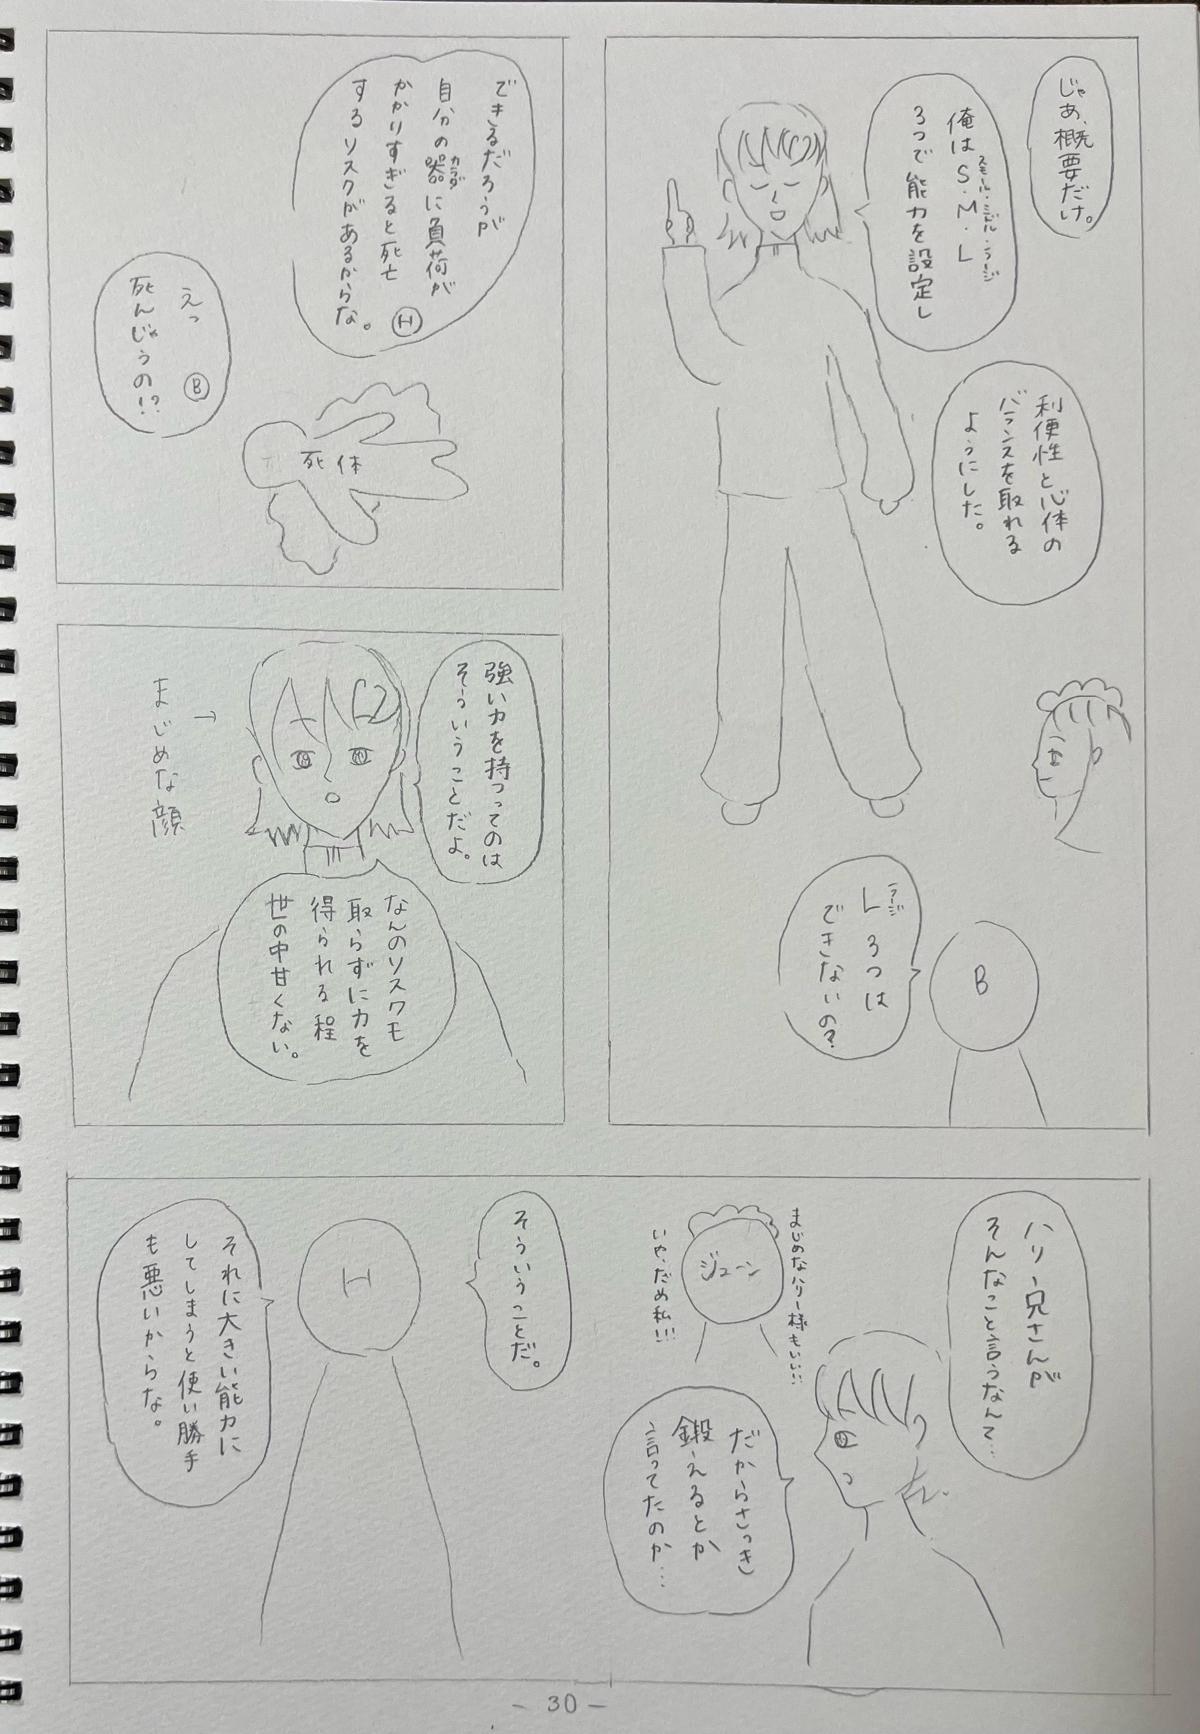 じゃあ、概要だけ。
俺はS・M・L
スモール・ミドル・ラージ
3つで能力を設定し
利便性と心体の
バランスを取れる
ようにした。
L 3つは
ラージ
できないの?
B
できるだろうが
自分の器に負荷が
カラダ
かかりすぎると死亡
するリスクがあるからな。
H
えっ
死んじゃうの!?
B
死体
強い力を持つってのは
そういうことだよ。
まじめな顔
→
なんのリスクも
取らずに力を
得られる程
世の中甘くない。
ハリー兄さんが
そんなこと言うなんて…
だからさっき
鍛えるとか
言ってたのか…
まじめなハリー様もいい!!
ジューン
いや、だめ私!!!
そういうことだ。
H
それに大きい能力に
してしまうと使い勝手
も悪いからな。
- 30 -